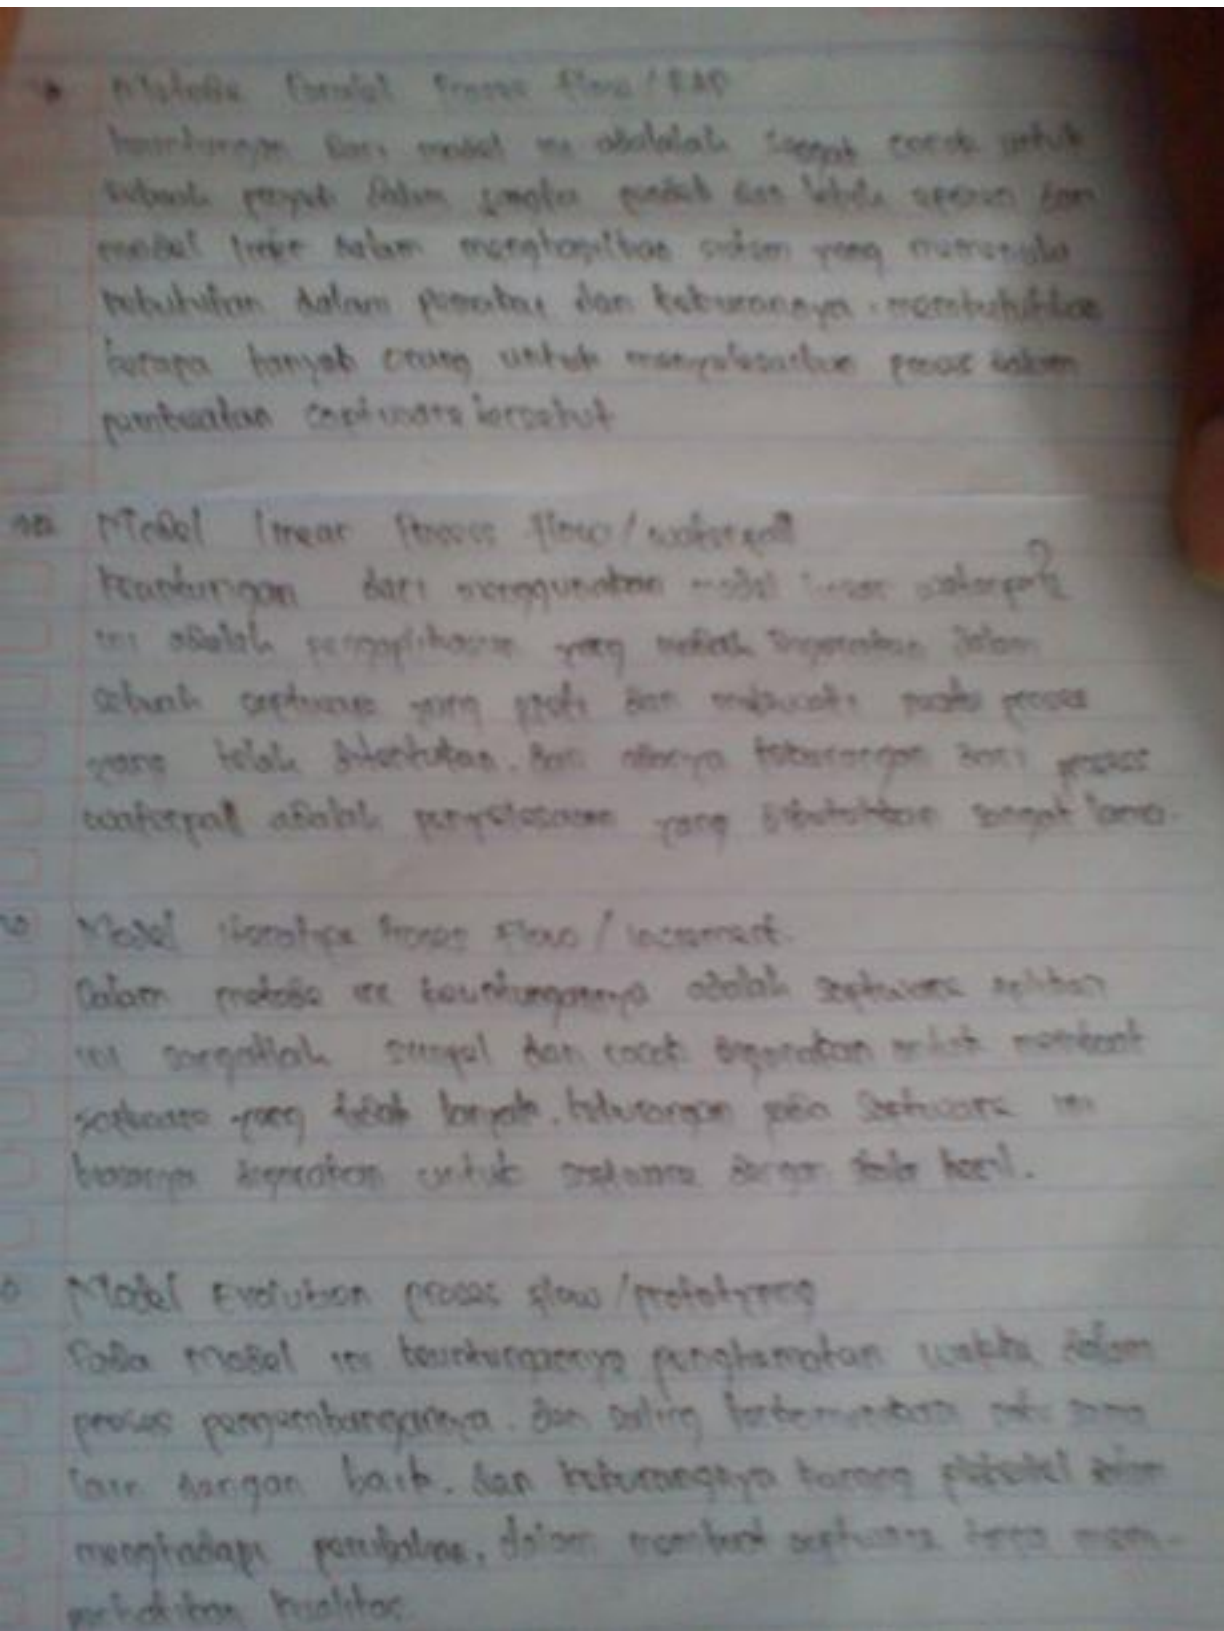 Metode Paralel Proses flow / RAD
keuntungan dari model ini adalalah sangat cocok untuk
sebuah proyek dalam jangka pendek dan lebih dari
model linier dalam menghasilkan sistem yang memenuhi
kebutuhan dalam dan kekurangnya membutuhkan
berapa banyak orang untuk menyelesaikan proses dalam
pembuatan soptware tersebut
Model linear Proses flow / waterpall
keuntungan dari menggunakan model linear waterpall
ini adalah pengaplikasian yang mudah digunakan dalam
sebuah soptware yang dan melewati proses
yang telah ditentukan. dan kekurangan dari proses
waterpall adalah penyelesaian yang dibutuhkan sangat lama.
Model Proses Flow / increment.
Dalam metode ini keuntungannya adalah soptware
ini sangatlah simpel dan cocok digunakan untuk membuat
soptware yang tidak banyak. kekurangan pada soptware ini
biasanya digunakan untuk soptware dengan skala kecil.
Model Evolution proses flow / prototyping
Pada Model ini keuntungannya penghematan waktu dalam
proses pengembangannya. dan saling satu sama
lain dengan baik. dan kekurangnya kurang dalam
menghadapi perubahan, dalam membuat soptware tanpa mem-
perhatikan kualitas